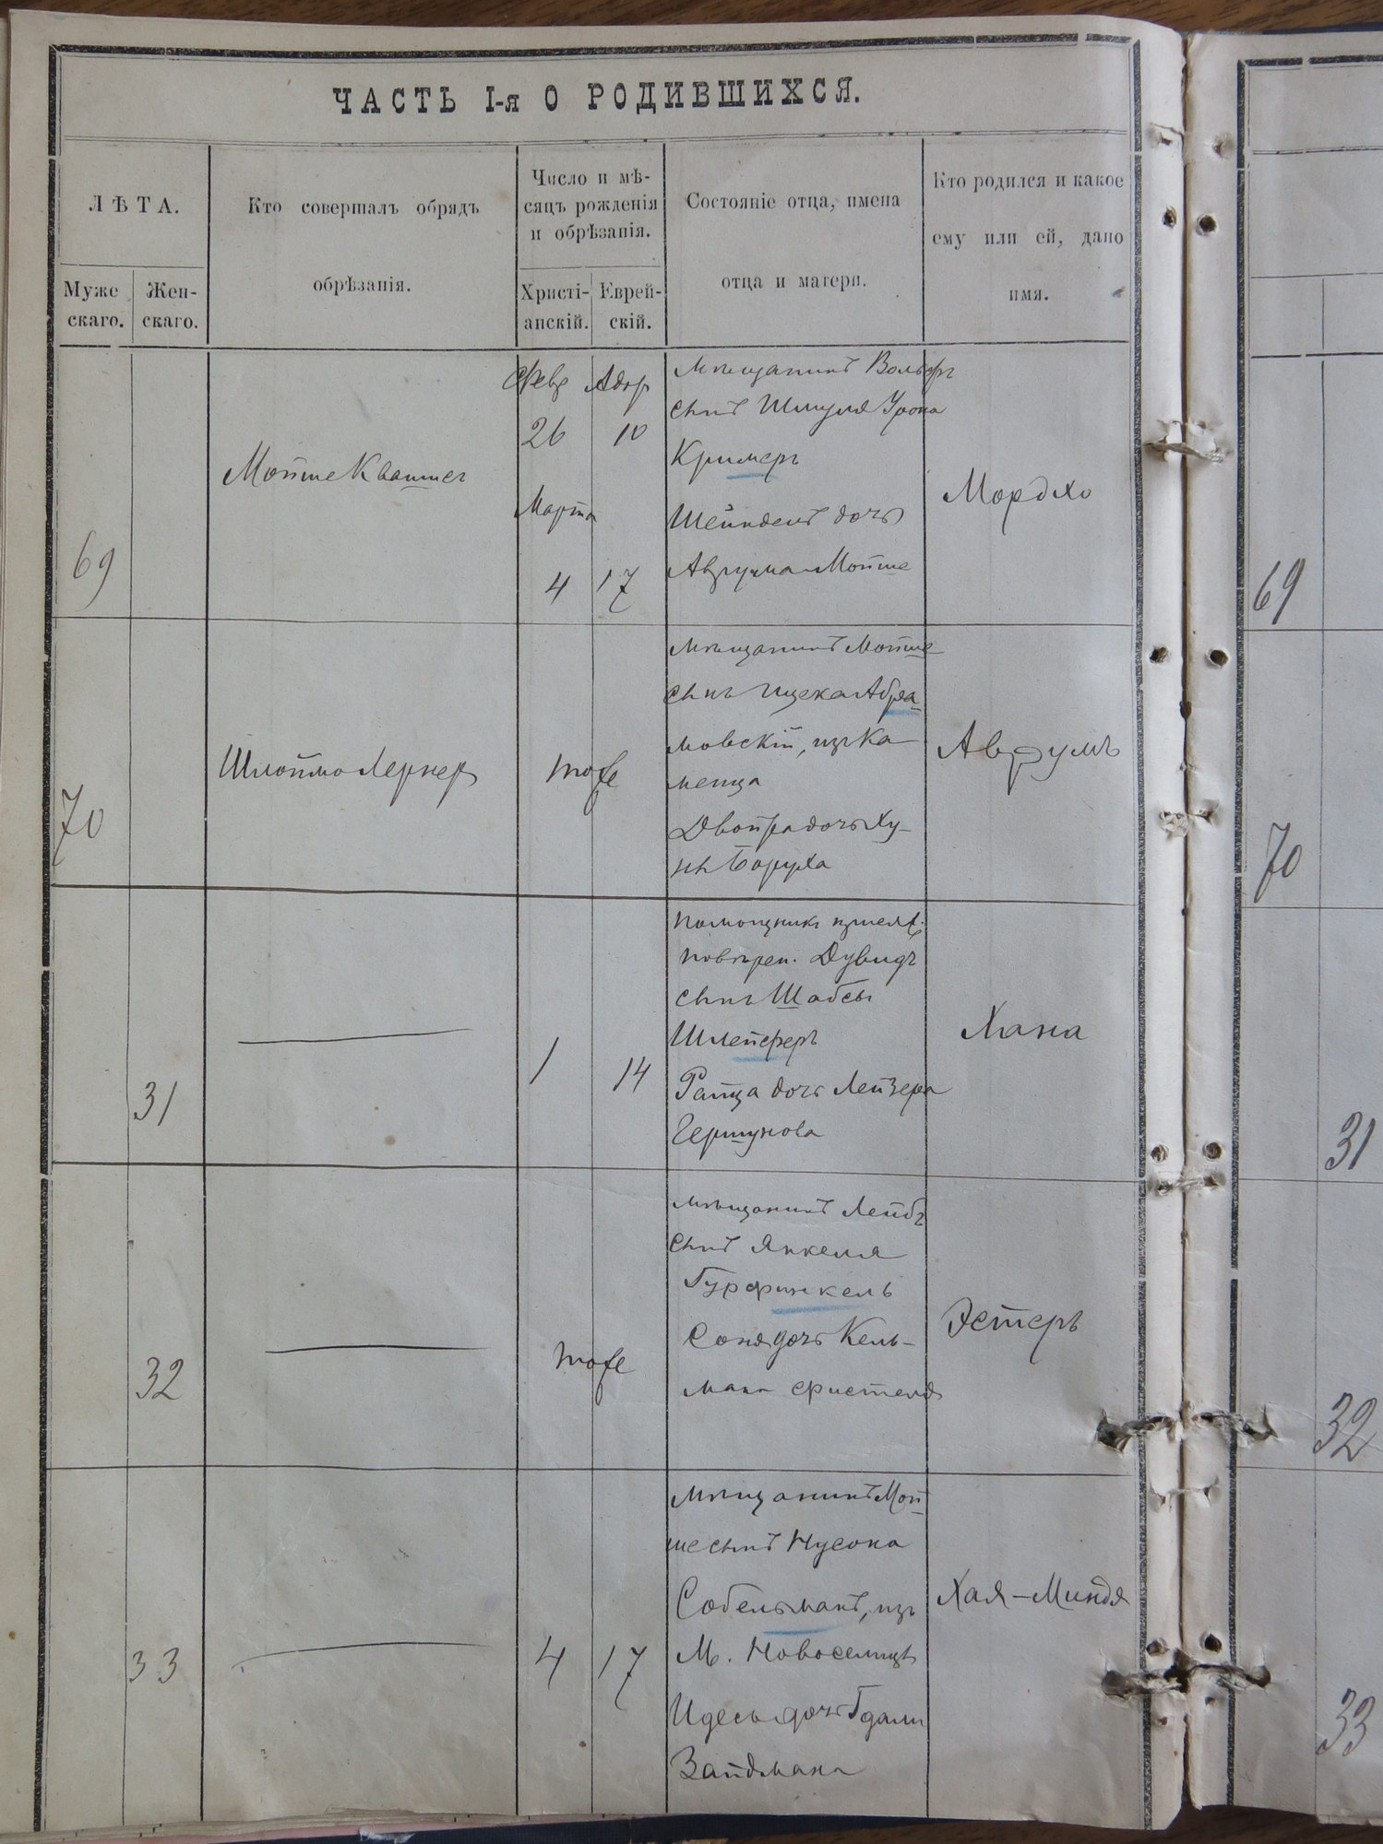 ЧАСТЬ I-я О РОДИВШИХСЯ.
ЛѢТА.
Муже
скаго.
Жен-
скаго.
Кто совершалъ обрядъ
обрѣзанія.
Число и мѣ-
сяцъ рожденія
и обрѣзанія.
Христі-
анскій.
Еврей-
скій.
Состояніе отца, имена
отца и матери.
Кто родился и какое
ему или ей, дано
имя.
69
Мойше Квашнег
Февр Адор
26 10
Марта
4 17
Мѣщанинъ Вольфъ
сынъ Шмуля Урона
Кримеръ
Шейндель дочь
Аврума Мойше
Мордхо
69
70
Шлоймо Лернер
тоже
Мѣщанинъ Мойше
сынъ Ицека Абра
мовскій, изъ Ка
менца
Двойра дочь Ху-
ны Боруха
Аврумъ
70
31
1 14
Помощникъ присяж.
повѣрен. Дувидъ
сынъ Шабсы
Шлейферъ
Райца дочь Лейзера
Гершунова
Хана
31
32
тоже
Мѣщанинъ Лейбъ
сынъ Янкеля
Гурфинкель
Соня дочь Кель-
мана Фиштеля
Эстеръ
32
33
4 17
Мѣщанинъ Мой
ше сынъ Нусона
Собельманъ, изъ
М. Новоселицъ
Идесь дочь Гдали
Зайдмана
Хая-Миндя
33